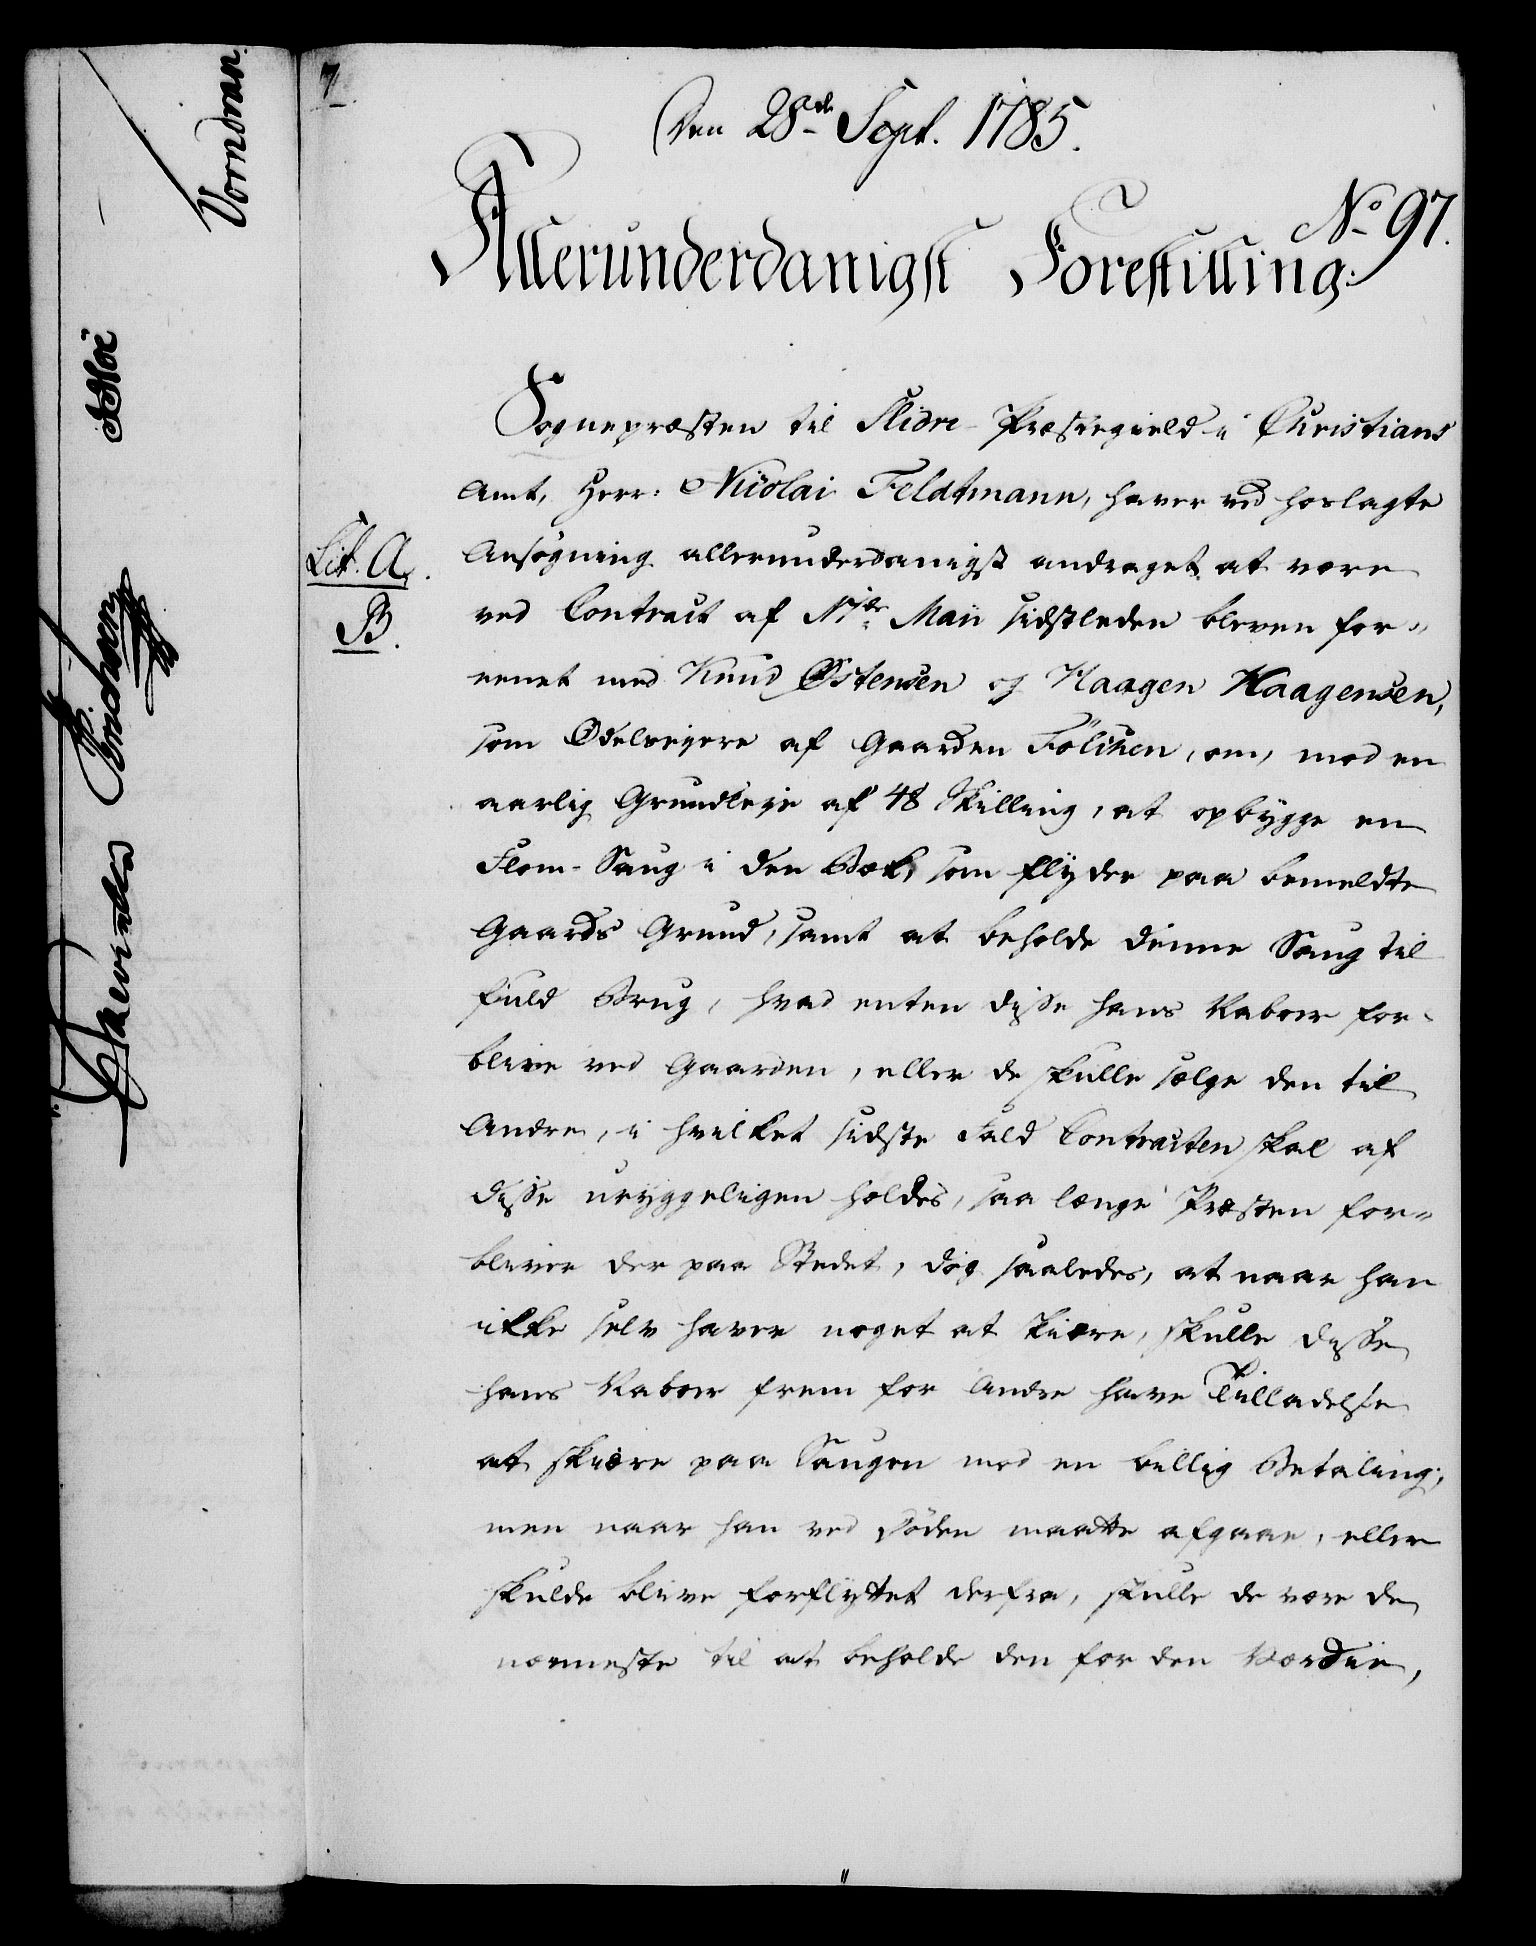 7.
Den 28de Sept. 1785.
No 97.
Allerunderdanigst Forestilling.
Sognepræsten til Slidre Præstegield i Christians
Amt, Herr: Nicolai Feldtmann, haver ved hoslagte
Lit. A. Ansøgning allerunderdanigst andraget, at være
B. ved Contract af 17de Maii sidstleden bleven for-
eenet med Knud Østensen og Haagen Haagensen,
som Odelseyere af Gaarden Fölihen, om, mod en
aarlig Grundleje af 48 Skilling, at opbygge en
Flom-Saug i den Bæk, som flyder paa bemeldte
Gaards Grund, samt at beholde denne Saug til
fuld Brug, hvad enten disse hans Naboer for-
blive ved Gaarden, eller de skulle sælge den til
Andre, i hvilket sidste Fald Contracten skal af
disse uryggeligen holdes, saa længe Præsten for-
bliver der paa Stedet, dog saaledes, at naar han
ikke selv haver noget at skiære, skulle disse
hans Naboer frem for Andre have Tilladelse
at skiære paa Saugen mod en billig Betaling;
men naar han ved Döden maatte afgaae, eller
skulde blive forflyttet derfra, skulle de være de
nærmeste til at beholde den for den Værdie,
Vorndran